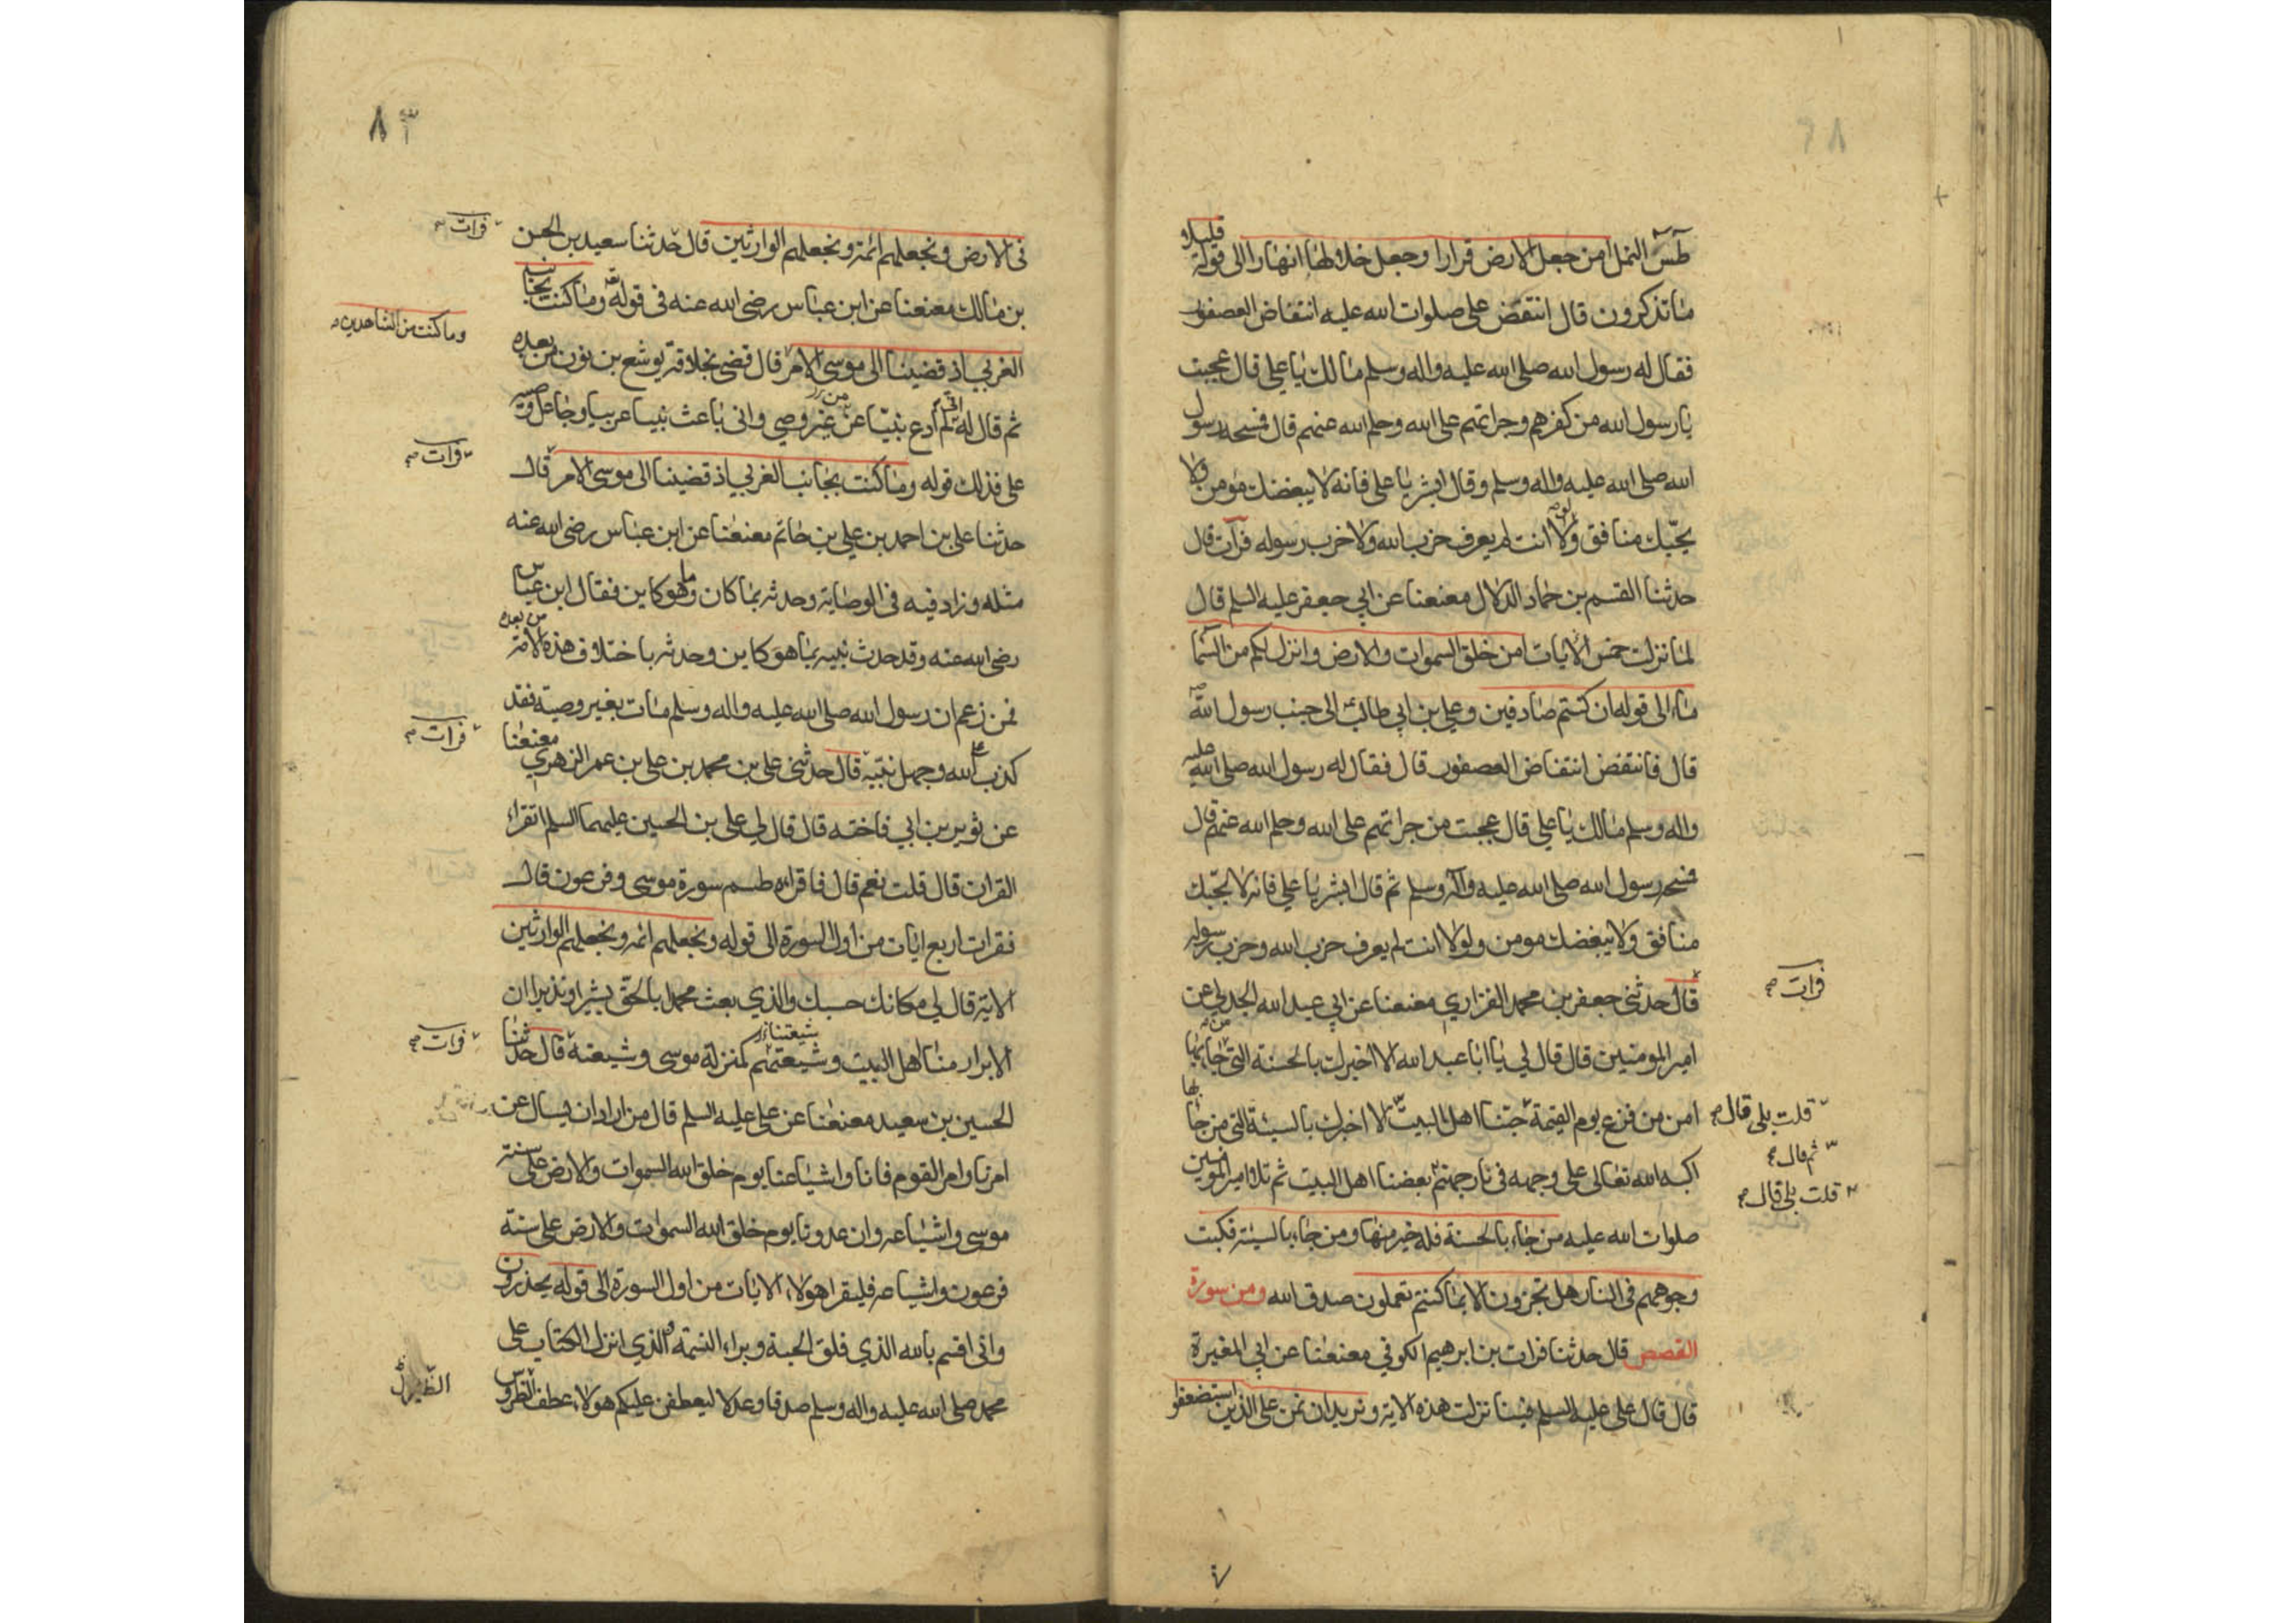 طس النمل امن جعل الارض قرارا وجعل خلالها انهارا الى قوله قليلا
ما تذكرون قال انتقض علي صلوات الله عليه انتفاض العصفور
فقال له رسول الله صلى الله عليه واله وسلم مالك يا علي قال عجبت
يا رسول الله من كفرهم وجراتهم على الله وحلم الله عنهم قال فمسحه رسول
الله صلى الله عليه واله وسلم وقال ابشر يا علي فانه لا يبغضك مؤمن ولا
يحبك منافق ولولا انت لم يعرف حزب الله ولا حزب رسوله فرات قال
حدثنا القسم بن حماد الدلال معنعنا عن ابي جعفر عليه السلم قال
لما نزلت خمس الايات امن خلق السموات والارض وانزل لكم من السما
ماء الى قوله ان كنتم صادقين وعلي بن ابي طالب الى جنب رسول الله
قال فانتقض انتفاض العصفور قال فقال له رسول الله صلى الله عليه
واله وسلم مالك يا علي قال عجبت من جراتهم على الله وحلم الله عنهم قال
فمسحه رسول الله صلى الله عليه وآله وسلم ثم قال ابشر يا علي فانه لا يحبك
منافق ولا يبغضك مومن ولولا انت لم يعرف حزب الله وحزب رسوله
قال حدثني جعفر بن محمد الفزاري معنعنا عن ابي عبد الله الجدلي عن
فرات
امير المومنين قال قال لي يا ابا عبد الله الا اخبرك بالحسنة التي من جا بها
امن من فزع يوم القيمة حبنا اهل البيت الا اخبرك بالسيئة التي من جا بها
قلت بلى قال
ثم قال
اكبه الله تعالى على وجهه في نار جهنم بغضنا اهل البيت ثم تلا امير المومنين
قلت بلى قال
صلوات الله عليه من جاء بالحسنة فله خير منها ومن جاء بالسيئة فكبت
وجوههم في النار هل تجزون الا بما كنتم تعملون صدق الله ومن سورة
القصص قال حدثنا فرات بن ابرهيم الكوفي معنعنا عن ابي المغيرة
قال قال علي عليه السلم فينا نزلت هذه الاية ونريد ان نمن على الذين استضعفوا
٨٣
في الارض ونجعلهم ائمة ونجعلهم الوارثين قال حدثنا سعيد بن الحسن
فرات
بن مالك معنعنا عن ابن عباس رضي الله عنه في قوله وما كنت بجانب
وما كنت من الشاهدين
الغربي اذ قضينا الى موسى الامر قال قضى بخلافة يوشع بن نون من بعده
ثم قال له اني لم ادع نبيا من غير وصي واني باعث نبيا عربيا وجاعل وصيه
علي فذلك قوله وما كنت بجانب الغربي اذ قضينا الى موسى الامر قال
فرات
حدثنا علي بن احمد بن علي بن حاتم معنعنا عن ابن عباس رضي الله عنه
مثله وزاد فيه في الوصاية وحدثه بما كان وما هو كاين فقال ابن عباس
رضي الله عنه وقد حدث نبيه بما هو كاين وحدثه باختلاف هذه الامة من بعده
فمن زعم ان رسول الله صلى الله عليه واله وسلم مات بغير وصية فقد
كذب الله وجهل نبيه قال حدثني علي بن محمد بن علي بن عمر الزهري معنعنا
فرات
عن ثوير بن ابي فاخته قال قال لي علي بن الحسين عليهما السلم اتقراء
القران قال قلت نعم قال فاقراء طسم سورة موسى وفرعون قال
فقرات اربع ايات من اول السورة الى قوله ونجعلهم ائمه ونجعلهم الوارثين
الاية قال لي مكانك حسبك والذي بعث محمد بالحق بشيرا ونذيرا ان
الابرار منا اهل البيت وشيعتهم كمنزلة موسى وشيعته قال حدثنا
شيعتنا
فرات
الحسين بن سعيد معنعنا عن علي عليه السلم قال من اراد ان يسال عن
امرنا وامر القوم فانا واشياعنا يوم خلق الله السموات والارض على سنة
موسى واشياعه وان عدونا يوم خلق الله السموات والارض على سنة
فرعون واشياعه فليقرا هولاء الايات من اول السورة الى قوله يحذرون
واني اقسم بالله الذي فلق الحبة وبراء النسمة والذي انزل الكتاب على
محمد صلى الله عليه واله وسلم صدقا وعدلا ليعطفن عليكم هولاء عطف الضروس